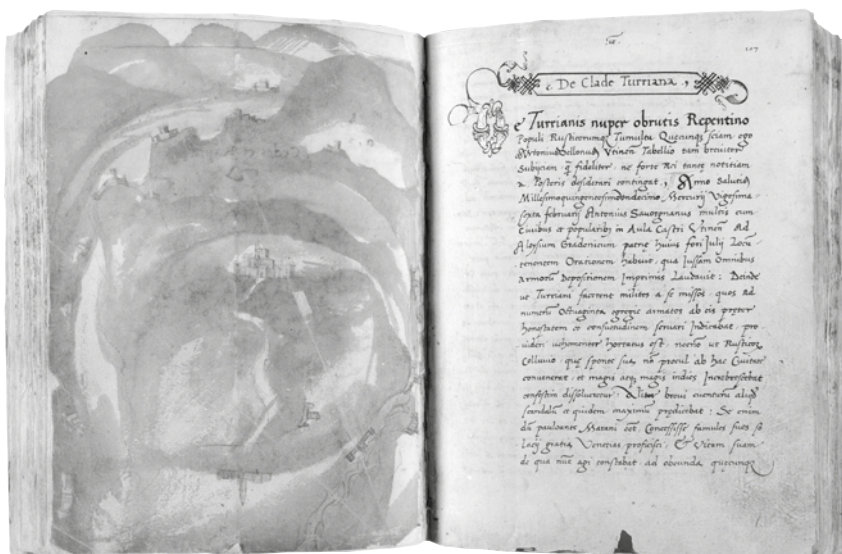 107
De Clade Turriana
De Turrianis nuper obrutis Repentino
Populi Rusticorumq; Tumultu Quęcunq; sciam ego
Antonius Bellonus Utinen Tabellio tam breviter
Subijciam q̃ fideliter, ne forte Rei tanctę notitiam
a Posteris desiderari contingat, Anno Salutis
Millesimoquingentesimoundecimo, Mercurij Vigesima
sexta februarij Antonius Savorgnanus multis cum
Civibus et popularibus in Aula Castri Utinen Ad
Aloysium Gradonicum patrię huius fori Julij Locu-
tenentem Orationem habuit, qua Jussam Omnibus
Armorũ Depositionem Imprimis Laudavit: Deinde
ut Turriani facerent milites a se missos, quos Ad
numerũ Octuaginta egregie armatos ab eis pręter
honestatem et consuetudinem servari Indicabat, pro-
videri vehementer hortatus est, necnõ ut Rusticoꝝ
Colluvio, quę sponte sua, nõ procul ab hac Civitate
convenerat, et magis atq; magis indies Increbrescebat
confestim dissolveretur: Alias brevi eventurũ aliqd
scandalũ et quidem maximũ predicebat: Se enim
dũ Concessisse famulos suos so-
lacij gratia Venetias proficisci, Et Vitam suam
de qua nũc agi constabat, ad obeunda quęcunq;